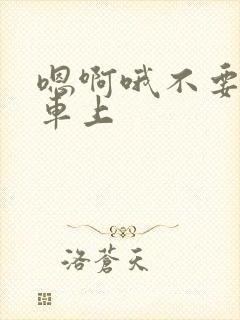 嗯啊哦不要
車上
洛蒼天